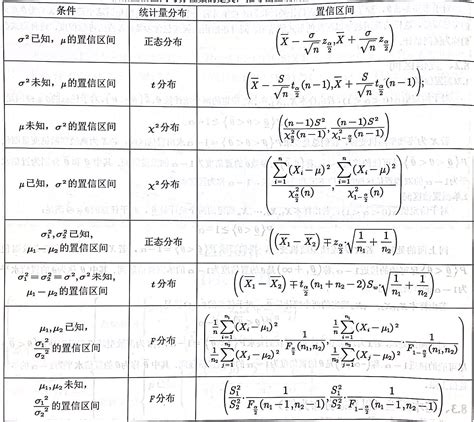 条件 统计量分布 置信区间
σ²已知，μ的置信区间 正态分布 (X̄ - σ/√n z_{α/2}, X̄ + σ/√n z_{α/2})
σ²未知，μ的置信区间 t分布 (X̄ - S/√n t_{α/2}(n-1), X̄ + S/√n t_{α/2}(n-1));
μ未知，σ²的置信区间 χ²分布 ((n-1)S²/χ²_{α/2}(n-1), (n-1)S²/χ²_{1-α/2}(n-1))
μ已知，σ²的置信区间 χ²分布 (∑_{i=1}^{n}(X_i-μ)²/χ²_{α/2}(n), ∑_{i=1}^{n}(X_i-μ)²/χ²_{1-α/2}(n))
σ₁²,σ₂²已知，
μ₁-μ₂的置信区间 正态分布 ((X̄₁-X̄₂)∓z_{α/2}·√(1/n₁+1/n₂))
σ₁²=σ₂²=σ²,σ²未知，
μ₁-μ₂的置信区间 t分布 ((X̄₁-X̄₂)∓t_{α/2}(n₁+n₂-2)S_w·√(1/n₁+1/n₂))
μ₁,μ₂已知，
σ₁²/σ₂²的置信区间 F分布
μ₁,μ₂未知，
σ₁²/σ₂²的置信区间 F分布 (S₁²/S₂²·1/F_{α/2}(n₁-1,n₂-1), S₁²/S₂²·1/F_{1-α/2}(n₁-1,n₂-1))
8.3